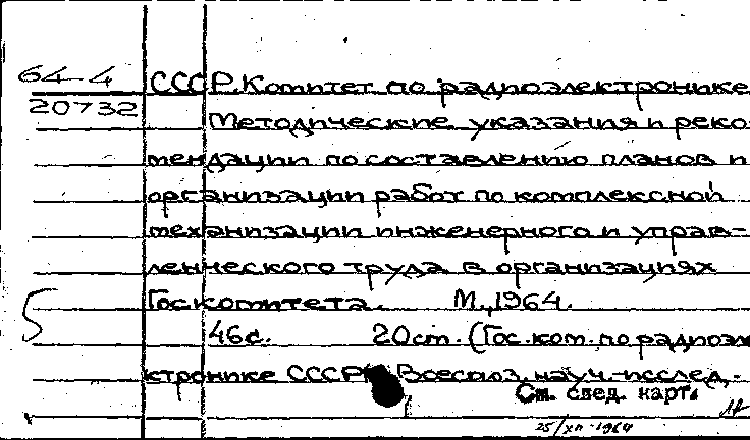 64-4
20732
СССР. Комитет по радиоэлектронике
Методические указания и реко
мендации по составлению планов и
организации работ по комплексной
механизации инженерного и управ-
ленческого труда в организациях
Госкомитета. М., 1964.
5
46с. 20см. (Гос. ком. по радиоэле
ктронике СССР. Всесоюз. науч.-исслед.
См. след. карт.
25/XII-1964